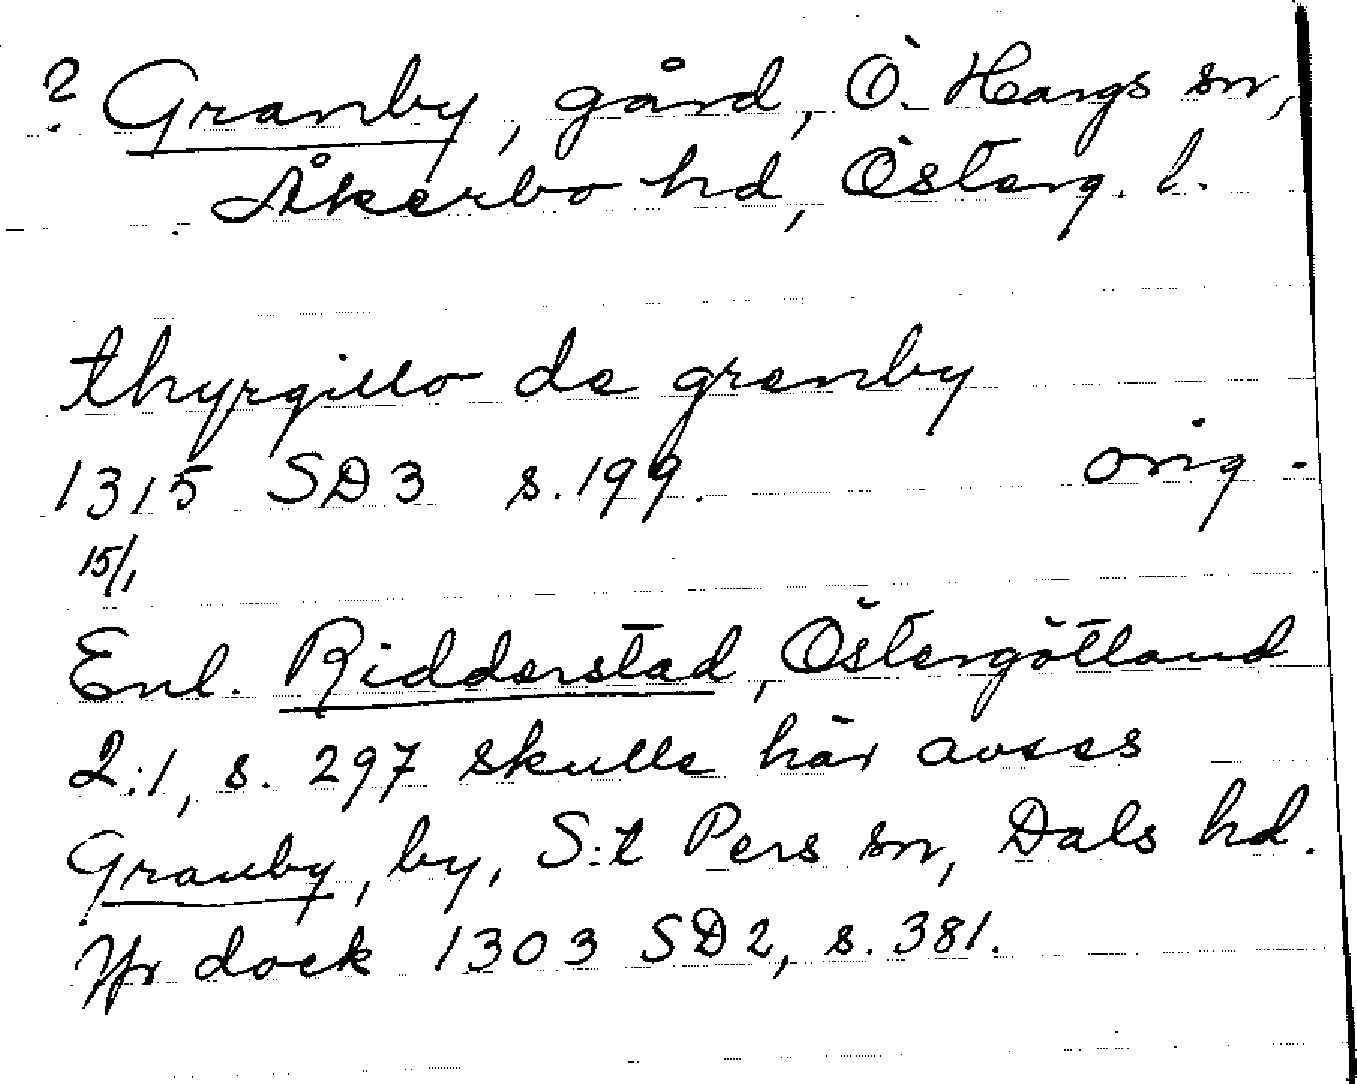 ? Granby, gård, Ö. Hargs sn,
Åkerbo hd, Österg. l.
thyrgillo de grenby
1315 SD3 s. 199. orig.
15/1
Enl. Ridderstad, Östergötland
2:1, s. 297 skulle här avses
Granby, by, S:t Pers sn, Dals hd.
Jfr dock 1303 SD2, s. 381.